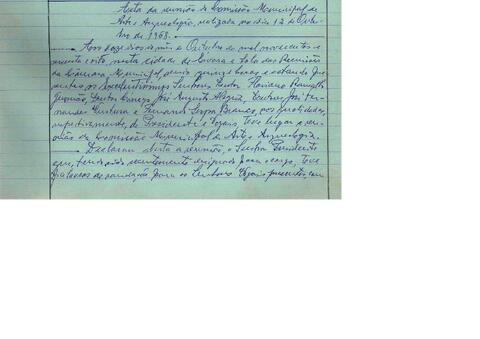 Acta da reunião da Comissão Municipal de
Arte e Arqueologia, realizada no dia 12 de Outu-
bro de 1968.
Aos doze dias do mês de Outubro de mil novecentos e
sessenta e oito, nesta cidade de e Sala das Reuniões
da Câmara Municipal, pelas quinze horas e estando pre-
sentes os Excelentíssimos Senhores Doutor Floriano
Doutor José Augusto Alegria, Doutor José Fer-
nandes e Fernando Serpa Branco, nas qualidades,
respectivamente, de Presidente e Vogais teve lugar a reu-
nião da Comissão Municipal de Arte e Arqueologia.
Declarou aberta a reunião, o Senhor Presidente
que, tendo sido recentemente designado para o cargo, teve
palavras de saudação para os Senhores Vogais presentes, com